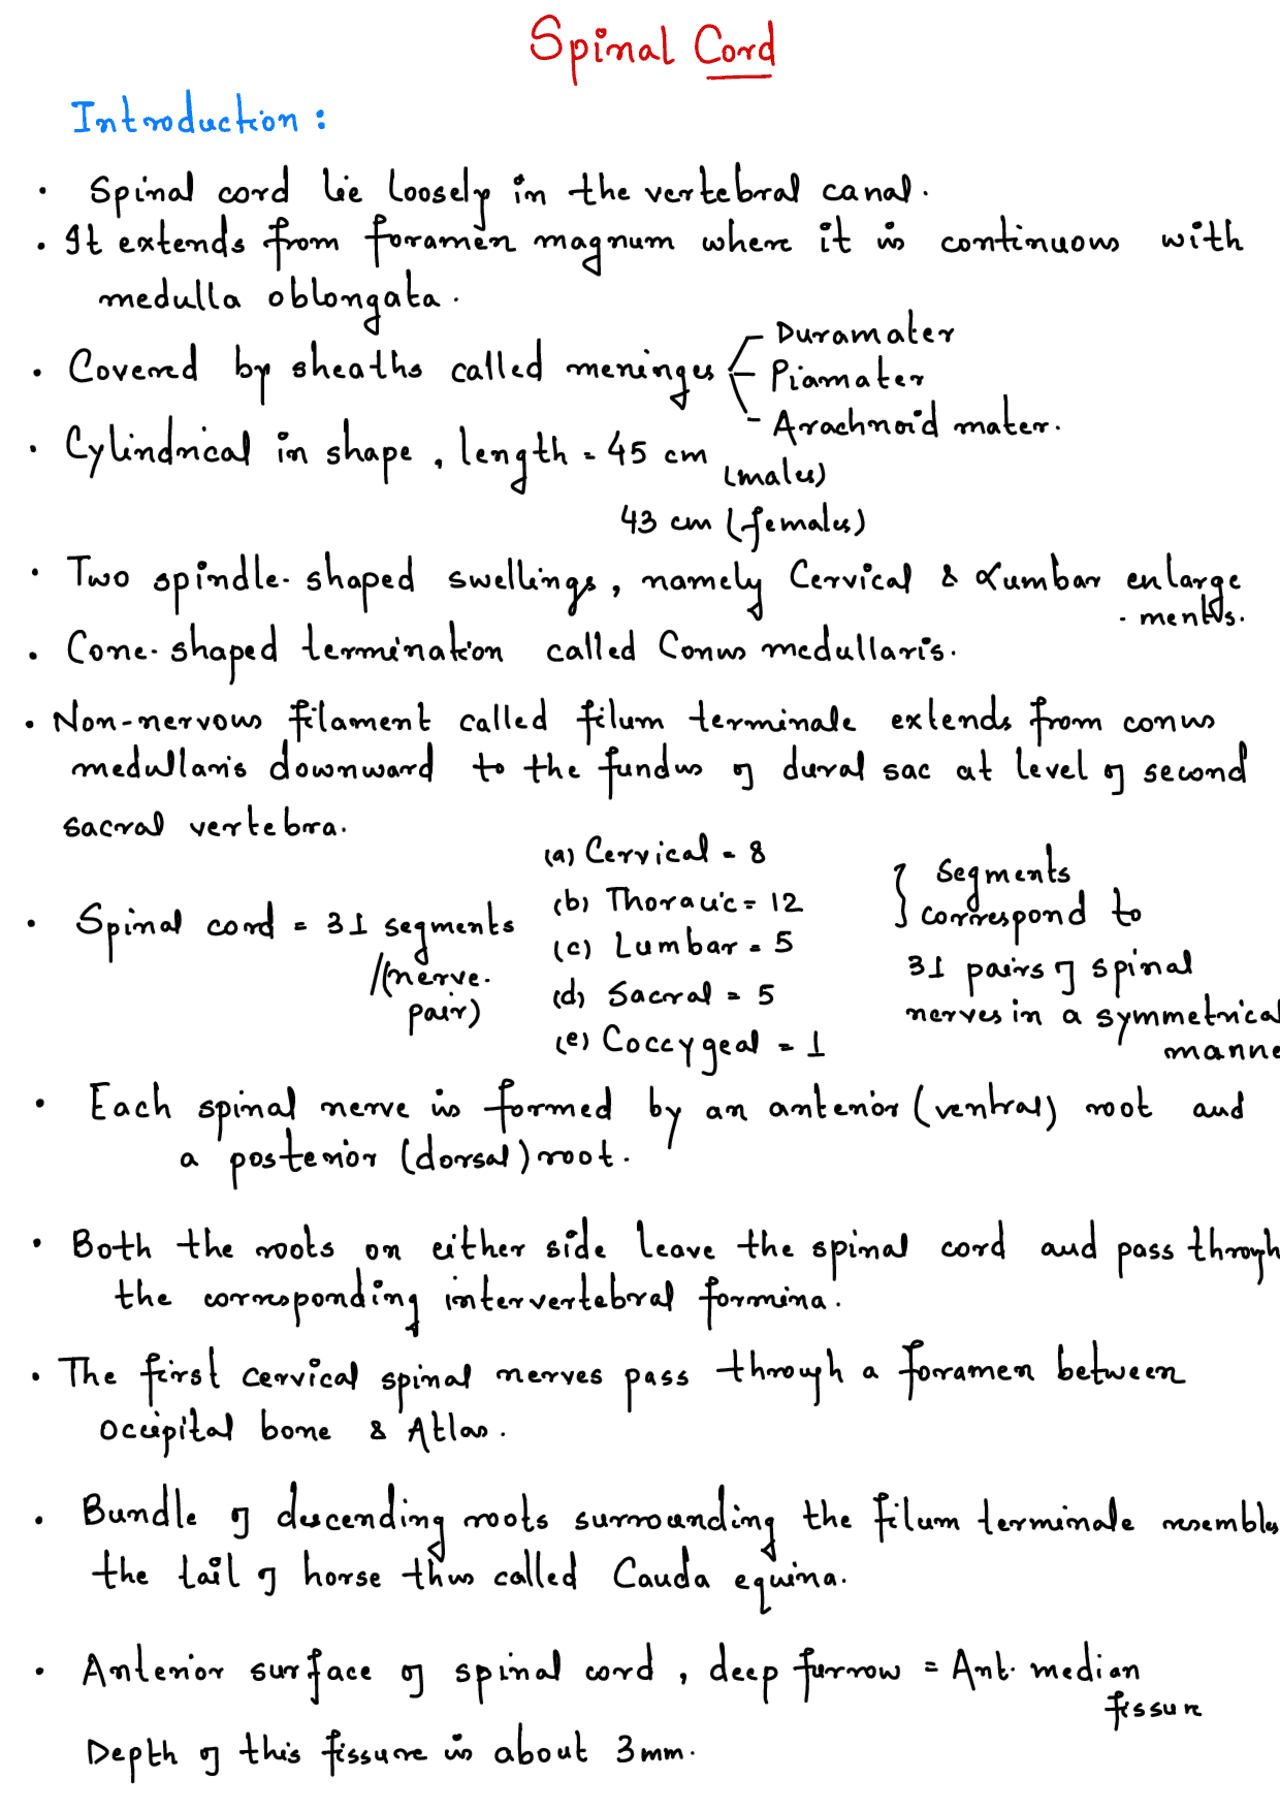 Spinal Cord
Introduction :
• Spinal cord lie loosely in the vertebral canal.
• It extends from foramen magnum where it is continuous with
medulla oblongata.
• Covered by sheaths called meninges
Duramater
Piamater
Arachnoid mater.
• Cylindrical in shape, length = 45 cm (males)
43 cm (females)
• Two spindle-shaped swellings, namely Cervical & Lumbar enlarge
- ments.
• Cone-shaped termination called Conus medullaris.
• Non-nervous filament called filum terminale extends from conus
medullaris downward to the fundus of dural sac at level of second
sacral vertebra.
• Spinal cord = 31 segments
/(nerve-
pair)
(a) Cervical = 8
(b) Thoracic = 12
(c) Lumbar = 5
(d) Sacral = 5
(e) Coccygeal = 1
Segments
correspond to
31 pairs of spinal
nerves in a symmetrical
manne
• Each spinal nerve is formed by an anterior (ventral) root and
a posterior (dorsal) root.
• Both the roots on either side leave the spinal cord and pass through
the corresponding intervertebral formina.
• The first cervical spinal nerves pass through a foramen between
Occipital bone & Atlas.
• Bundle of descending roots surrounding the filum terminale resembles
the tail of horse thus called Cauda equina.
• Anterior surface of spinal cord, deep furrow = Ant. median
fissure
Depth of this fissure is about 3mm.